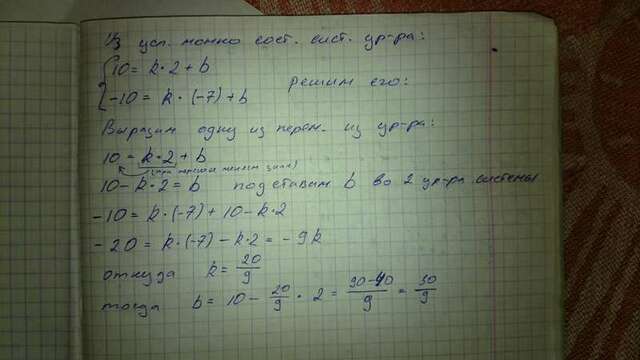 Из усл. можно сост. сист. ур-ра:
10 = k·2 + b
-10 = k·(-7) + b решим его:
Выразим одну из перем. из ур-ра:
10 = k·2 + b
(при переносе меняем знак)
10 - k·2 = b подставим b во 2 ур-ра системы
-10 = k·(-7) + 10 - k·2
-20 = k·(-7) - k·2 = -9k
откуда k = 20/9
тогда b = 10 - 20/9 · 2 = 90-40/9 = 50/9